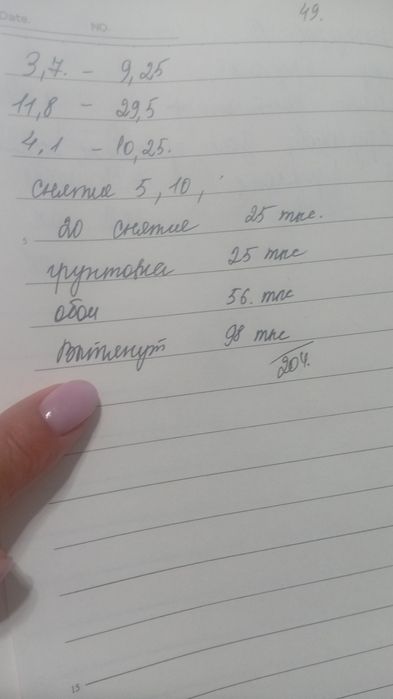 Date. NO.
49.
3,7. - 9,25
11,8 - 29,5
4,1 - 10,25.
снятие 5, 10,
5
20 снятие 25 тыс.
грунтовка 25 тыс
обои 56. тыс
Вытянут 98 тыс
204.
15